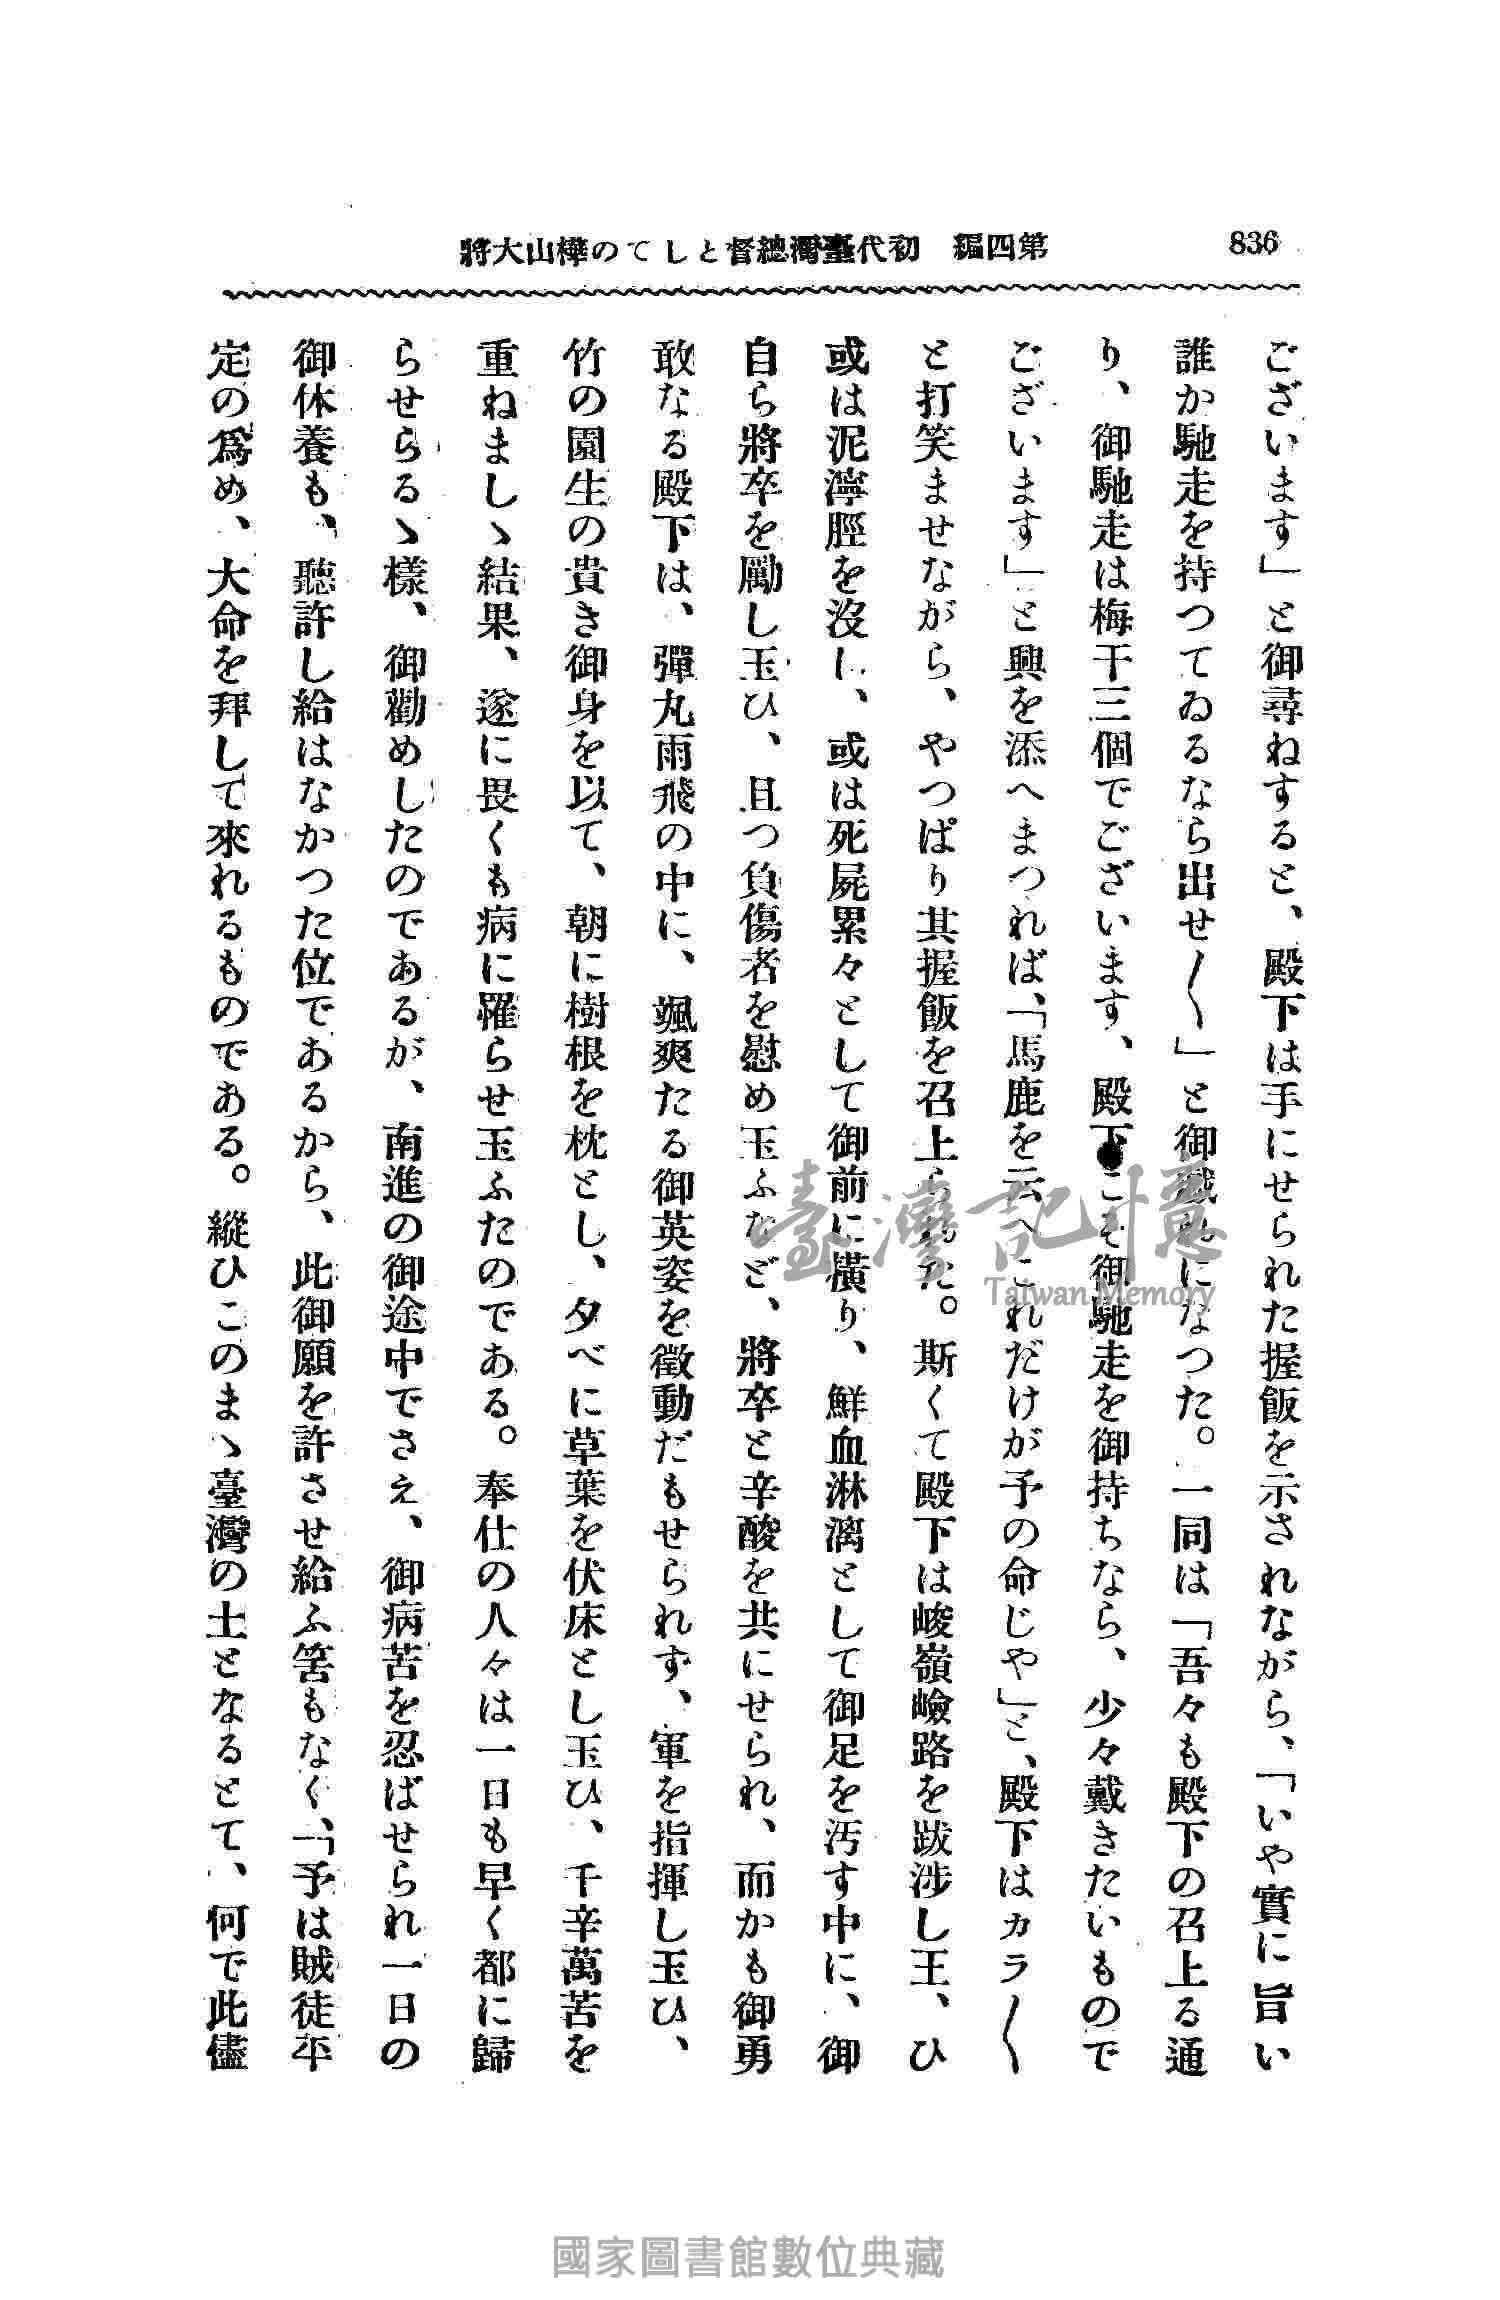 836
第四編　初代臺灣總督としての樺山大將
ございます」と御尋ねすると、殿下は手にせられた握飯を示されながら、「いや實に旨い
誰か馳走を持つてゐるなら出せ〱」と御戯れになつた。一同は「吾々も殿下の召上る通
り、御馳走は梅干三個でございます、殿下こそ御馳走を御持ちなら、少々戴きたいもので
ございます」と興を添へまつれば、「馬鹿を云へこれだけが予の命じや」と、殿下はカラ〱
と打笑ませながら、やつぱり其握飯を召上られた。斯くて殿下は峻嶺嶮路を跋涉し王、ひ
或は泥濘脛を沒し、或は死屍累々として御前に橫り、鮮血淋漓として御足を汚す中に、御
自ら將卒を勵し玉ひ、且つ負傷者を慰め玉ふなど、將卒と辛酸を共にせられ、而かも御勇
敢なる殿下は、彈丸雨飛の中に、颯爽たる御英姿を微動だもせられず、軍を指揮し玉ひ、
竹の園生の貴き御身を以て、朝に樹根を枕とし、夕べに草葉を伏床とし玉ひ、千辛萬苦を
重ねましゝ結果、遂に畏くも病に罹らせ玉ふたのである。奉仕の人々は一日も早く都に歸
らせらるゝ樣、御勸めしたのであるが、南進の御途中でさえ、御病苦を忍ばせられ一日の
御休養も、聽許し給はなかつた位であるから、此御願を許させ給ふ筈もなく、「予は賊徒平
定の爲め、大命を拜して來れるものである。縱ひこのまゝ臺灣の土となるとて、何で此儘
臺灣記憶
Taiwan Memory
國家圖書館數位典藏